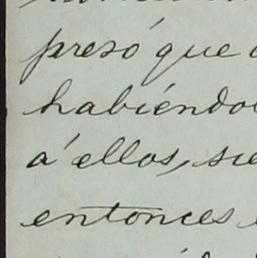 presó que
habiéndo
á ellos, sie
entonces